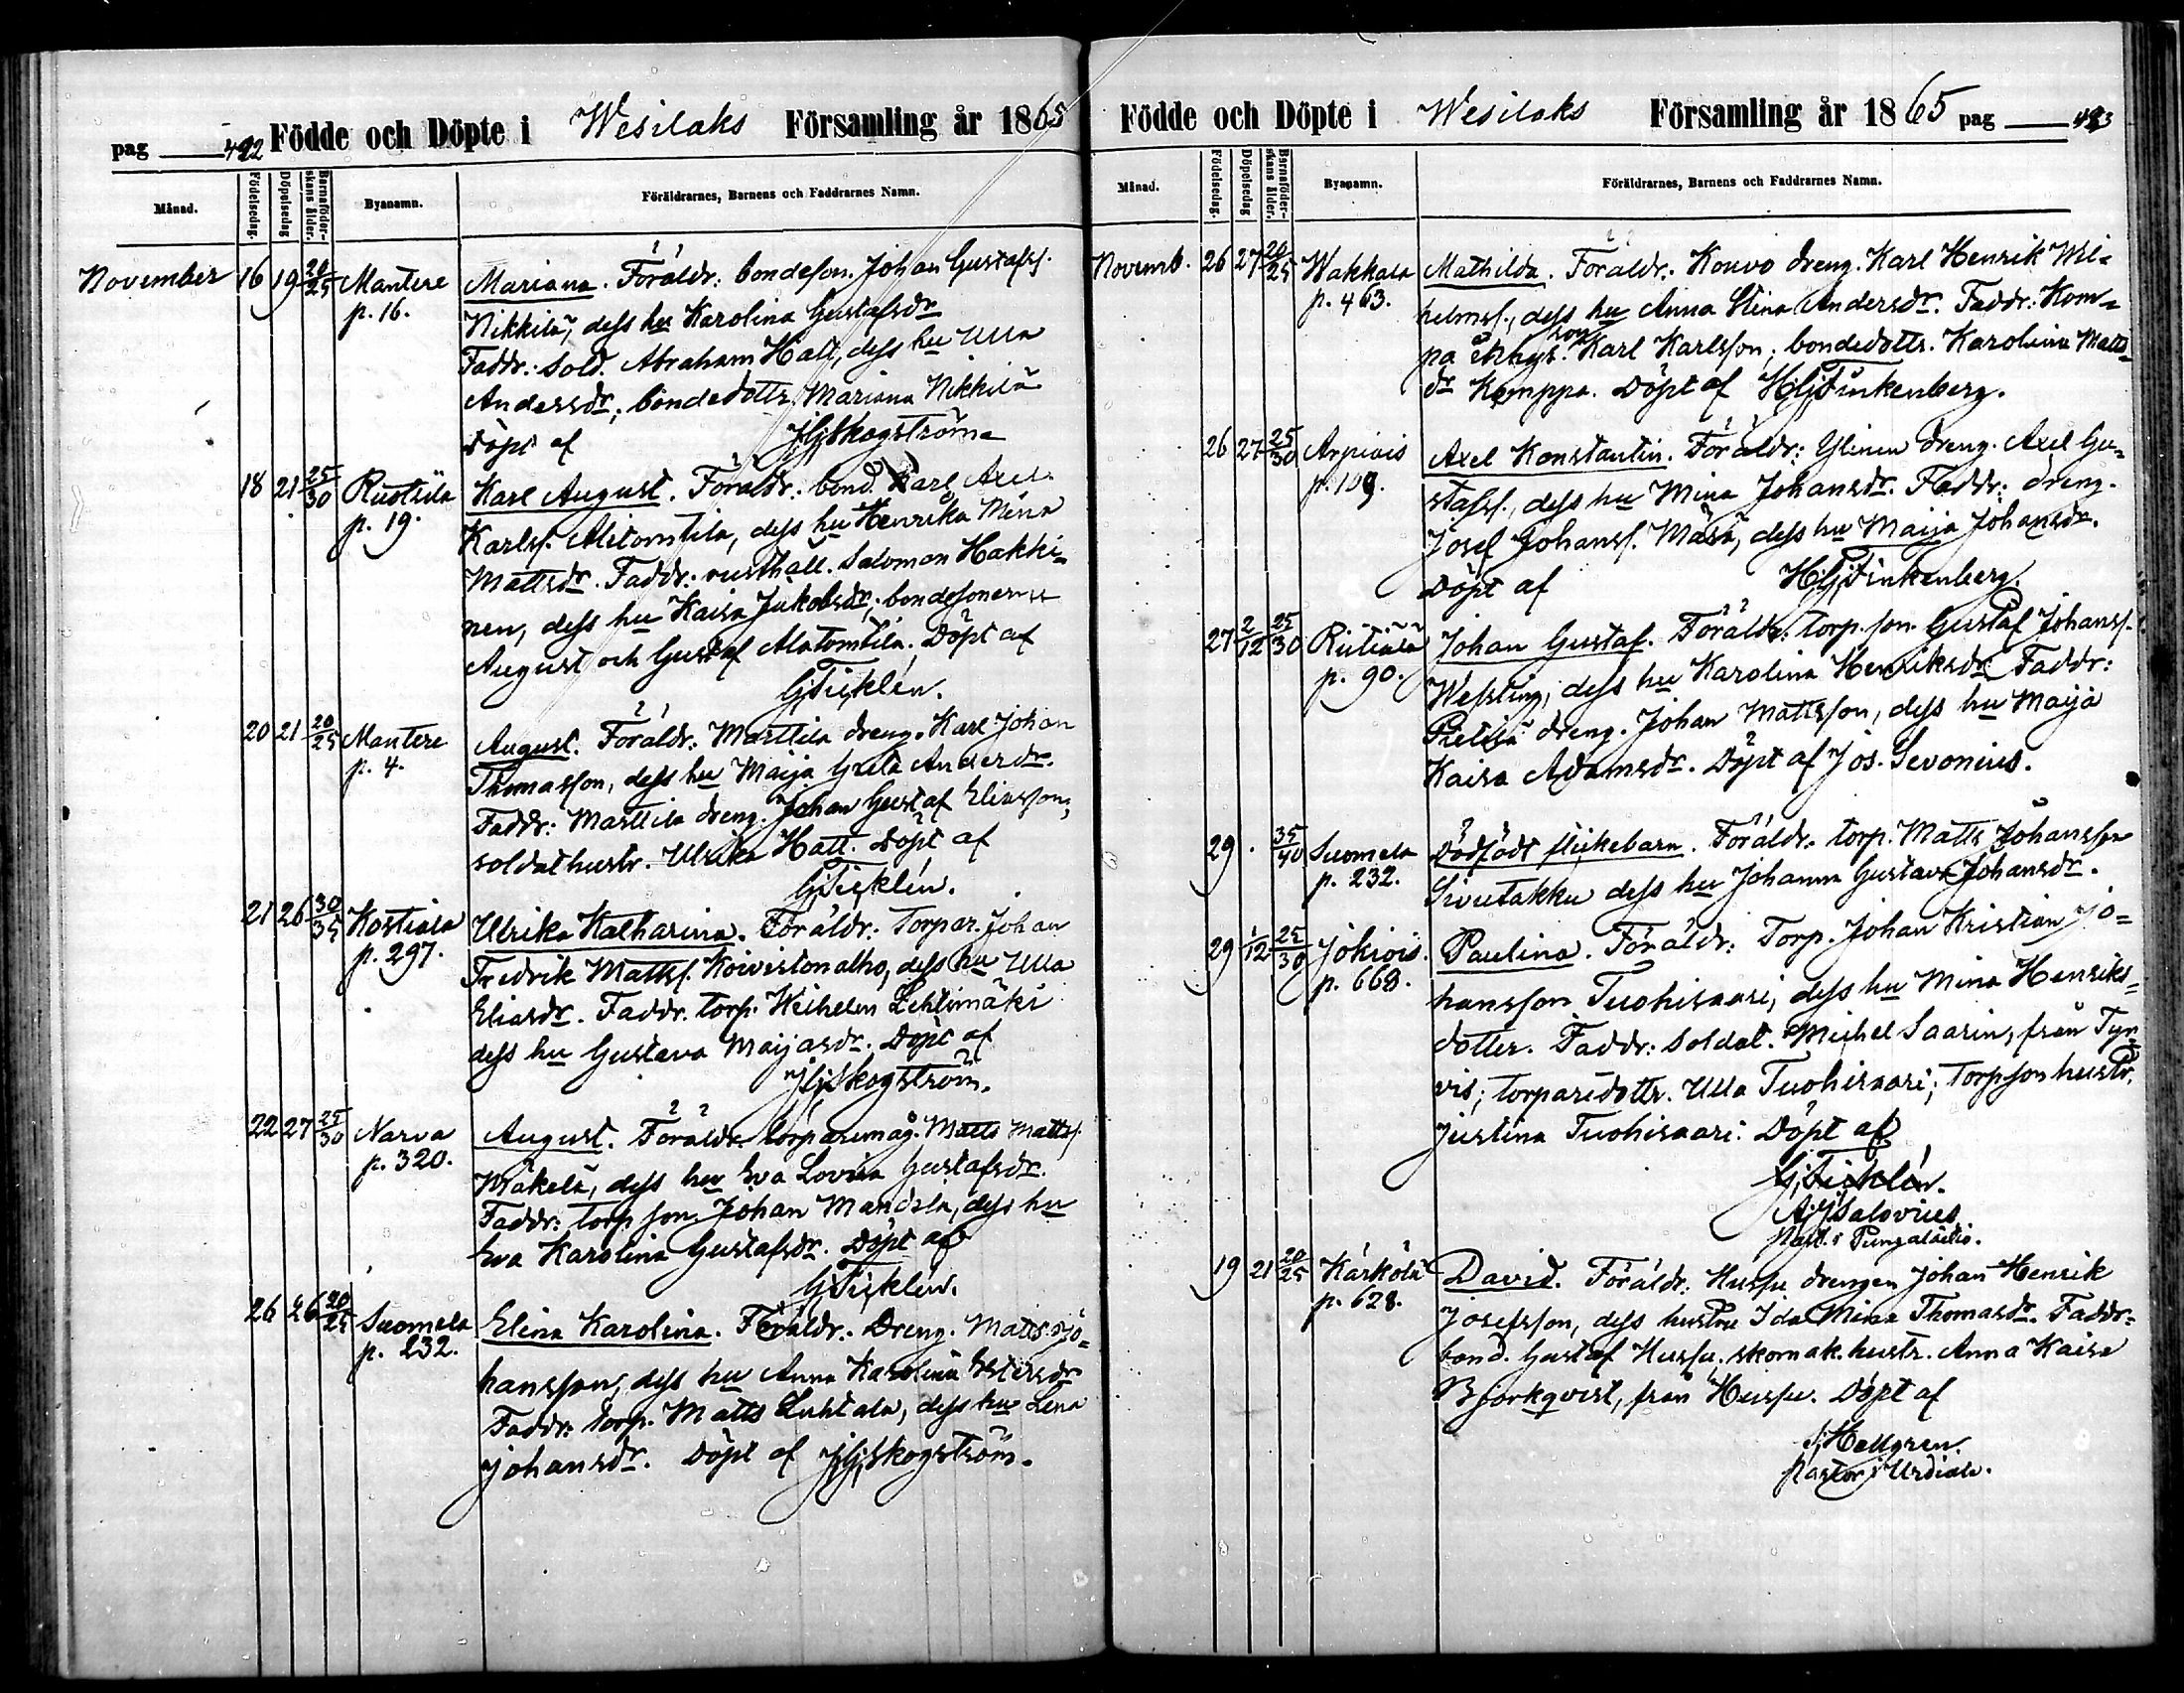 pag 422 Födde och Döpte i Wesilaks Församling år 1865
Månad. Födelsedag. Döpelsedag Barnaföderskans ålder. Byanamn. Föräldrarnes, Barnens och Faddrarnes Namn.
November 16 19 20/25 Mantere p. 16. Mariana. Föräldr: bondeson. Johan Gustafss.
Nikkilä, dess hu Karolina Gustafsdr
Faddr: Sold. Abraham Hatt, dess hu Ulla
Andersdr; bondedottr. Mariana Nikkilä
Döpt af JGSkogström
18 21 25/30 Rustsila p. 19. Karl August. Föräldr: bond. Karl Axel
Karlss. Alitomtila, dess hu Henrika Mina
Mattsdr. Faddr: rusthåll. Salomon Hakki-
nen, dess hu Kaisa Jakobsdr; bondesonerne
August och Gustaf Alatomtila. Döpt af
GTicklén.
20 21 20/25 Mantere p. 4. August. Föräldr: Marttila dreng. Karl Johan
Thomasson, dess hu Maija Greta Andersdr.
Faddr: Marttila dreng. Johan Gustaf Eliasson,
soldathustr. Ulrika Hatt. Döpt af
GTicklén.
21 26 30/35 Kostiala p. 297. Ulrika Katharina. Föräldr: Torpar. Johan
Fredrik Mattss. Koivistonalho, dess hu Ulla
Eliasdr. Faddr. torp. Wilhelm Lehtimäki
dess hu Gustava Maijasdr. Döpt af
JGSkogström.
22 27 25/30 Narva p. 320. August. Föräldr: torparemåg. Matts Mattss.
Mäkelä, dess hu Eva Lovisa Gustafsdr.
Faddr: torp son. Johan Mandila, dess hu
Eva Karolina Gustafsdr. Döpt af
GTicklén.
26 26 20/25 Suomela p. 232. Elina Karolina. Föräldr: Dreng. Matts Jo-
hansson, dess hu Anna Karolina Estersdr
Faddr: torp. Matts Luhtala, dess hu Lena
Johansdr. Döpt af JGSkogström.
Födde och Döpte i Wesilaks Församling år 1865 pag 423
Månad. Födelsedag. Döpelsedag Barnaföderskans ålder. Byanamn. Föräldrarnes, Barnens och Faddrarnes Namn.
Novemb. 26 27 20/25 Wakkala p. 463. Mathilda. Föräldr: Kouvo dreng. Karl Henrik Wil-
helmss., dess hu Anna Stina Andersdr. Faddr: Kom-
pa son Karl Karlsson; bondedottr. Karolina Matts-
dr Komppa. Döpt af HGFinkenberg.
26 27 25/30 Arpiais p. 109. Axel Konstantin. Föräldr: Ylinen dreng. Axel Gu-
stafss., dess hu Mina Johansdr. Faddr: dreng.
Josef Johanss. Mäsä, dess hu Maija Johansdr.
Döpt af HGFinkenberg.
27 2/12 25/30 Riitiala p. 90. Johan Gustaf. Föräldr: torp. son Gustaf Johanss.
Wessting, dess hu Karolina Henriksdr. Faddr:
Pietilä dreng. Johan Mattsson, dess hu Maija
Kaisa Adamsdr. Döpt af Jos. Sevonius.
29 . 35/40 Suomela p. 232. Dödfödt flickebarn. Föräldr: torp. Matts Johansson
Sivutakku dess hu Johanna Gustava Johansdr.
29 1/12 25/30 Jokiois. p. 668. Paulina. Föräldr: Torp. Johan Kristian Jo-
hansson Tuohisaari, dess hu Mina Henriks-
dotter. Faddr: Soldat. Michel Saarin, från Tyr-
vis; torparedottr. Ulla Tuohisaari; Torpsonhustr.
Justina Tuohisaari. Döpt af
GTicklén.
AJSalovius
Past. i Pungalaitio.
19 21 20/25 Kärkölä p. 628. David. Föräldr: Hussu drengen Johan Henrik
Josefsson, dess hustru Ida Mina Thomasdr. Faddr:
bond. Gustaf Hussu. skomak. hustr. Anna Kaisa
Björkqvist, från Hussu. Döpt af
Hellgren.
Pastor i Urdiala.